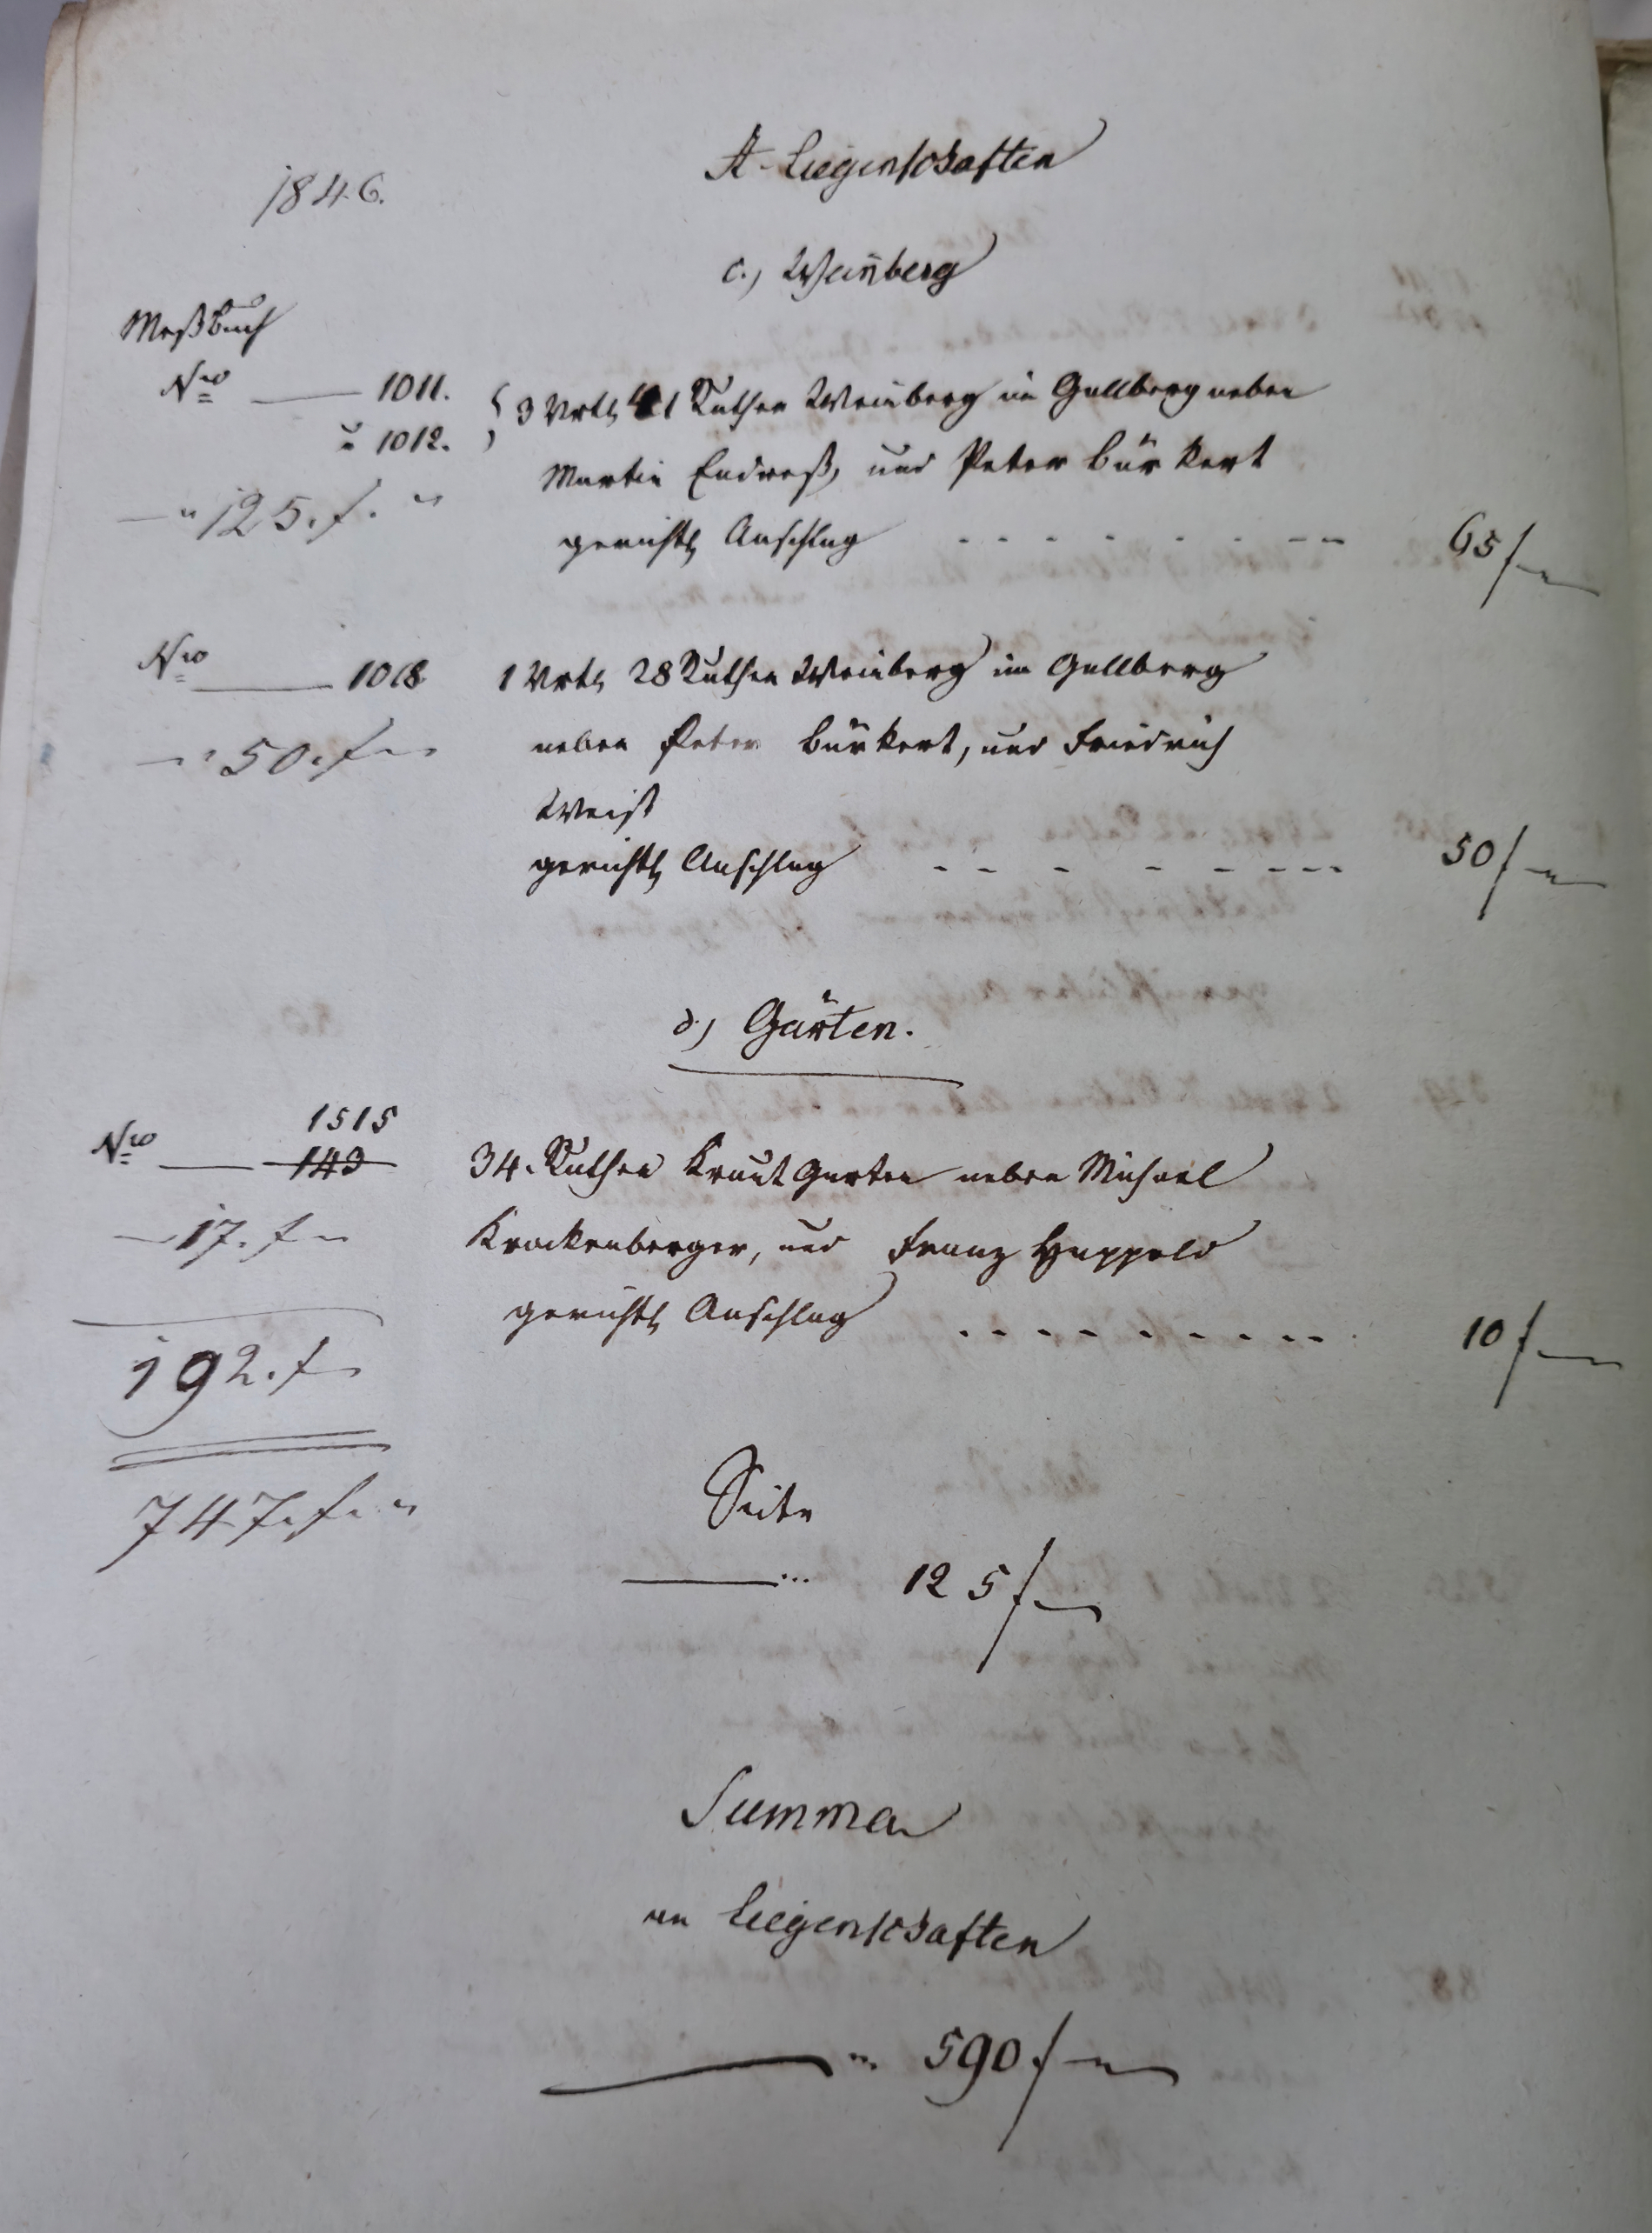 1846.
A. Liegenschaften
c.) Weinberg
Meßbuch
Nro 1011. 3 Vrtl 41 Ruthen Weinberg im Gallberg neben
u 1012.
Martin Endreß, und Peter Bürkert
125. f.
gerichtl Anschlag 65 f
Nro 1018 1 Vrtl 28 Ruthen Weinberg im Gallberg
50. f
neben Peter Bürkert, und Friedrich
Weiß
gerichtl Anschlag 50 f
d.) Gärten.
1515
Nro 143 34. Ruthen Kraut Garten neben Michael
17. f
Krackenberger, und Franz Happold
gerichtl Anschlag 10 f
192. f
747. f.
Seite
125 f
Summa
an Liegenschaften
590 f